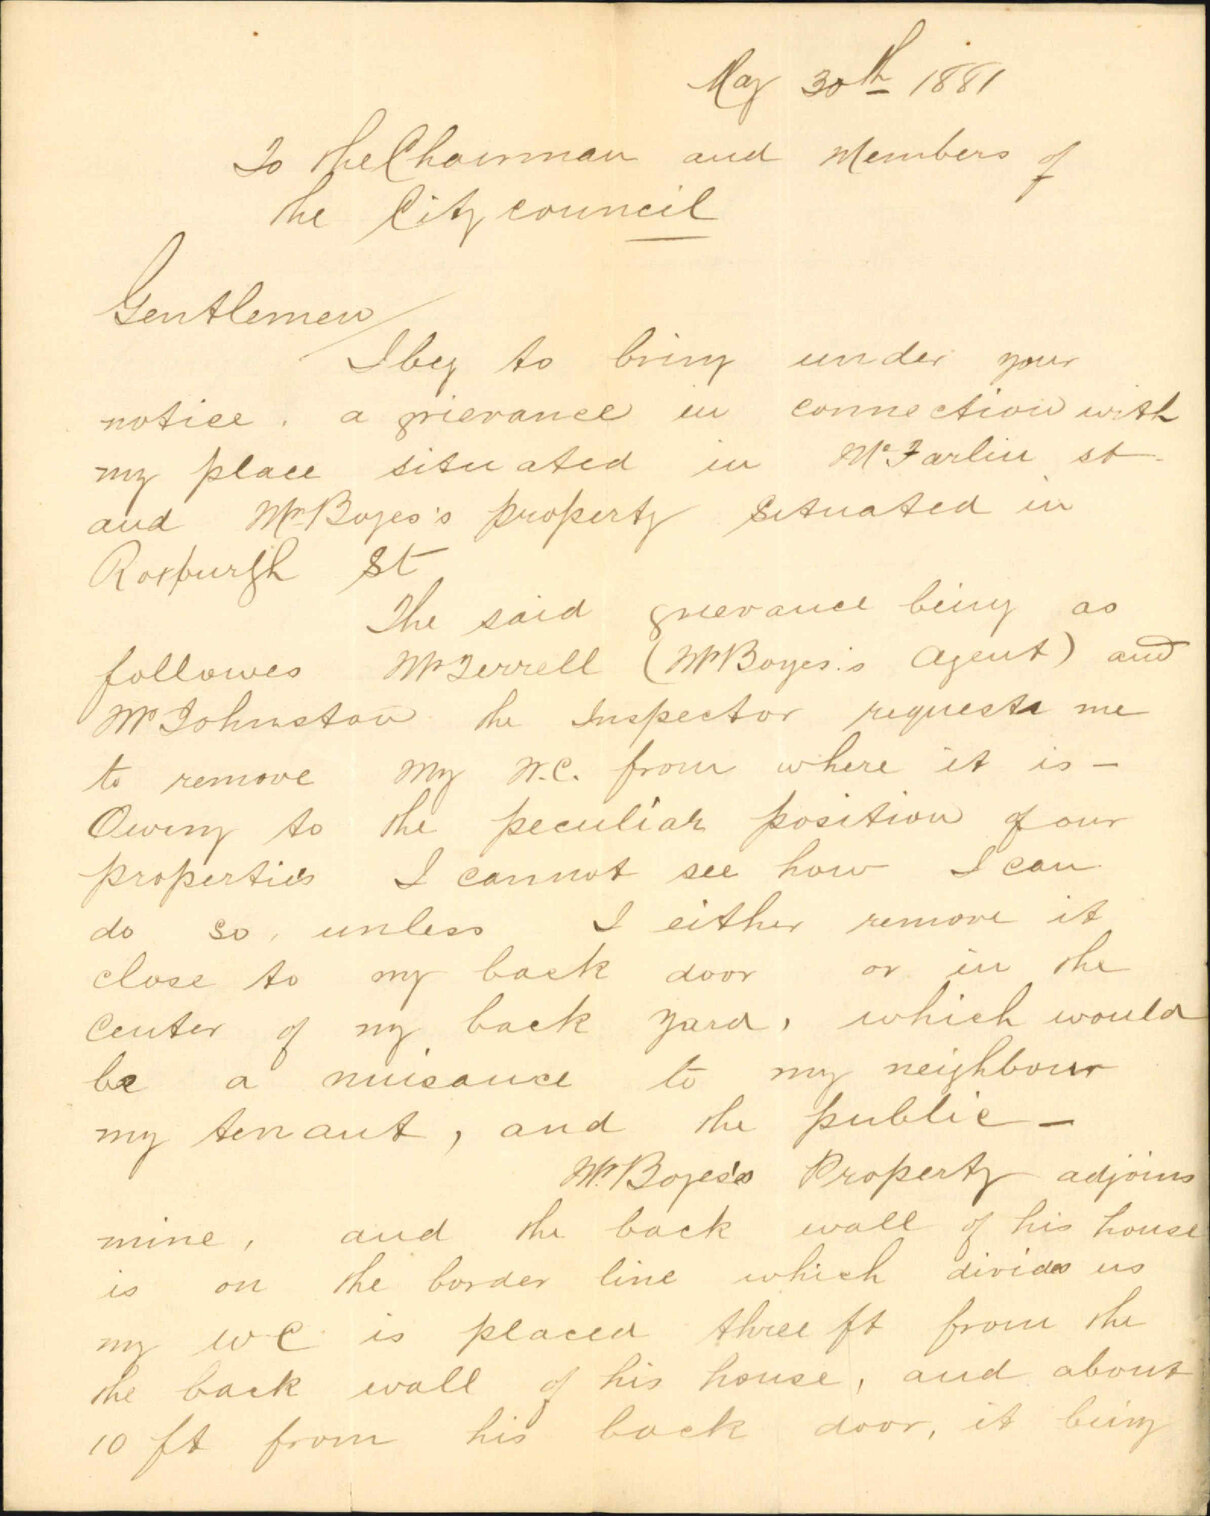 May 30th 1881
To the Chairman and Members of
the City council
Gentlemen
I beg to bring under your
notice. a grievance in connection with
my place situated in McFarlin st.
and Mr Boyes's property situated in
Roxburgh St
The said grievance being as
followes Mr Terrell (Mr Boyes's Agent) and
Mr Johnston the Inspector requests me
to remove my W.C. from where it is -
Owing to the peculiar position of our
properties I cannot see how I can
do so, unless I either remove it
close to my back door or in the
center of my back yard, which would
be a nuisance to my neighbour
my tenant, and the public -
Mr. Boyes's Property adjoins
mine, and the back wall of his house
is on the border line which divides us
my W-C is placed three ft from the
the back wall of his house, and about
10 ft from his back door, it being